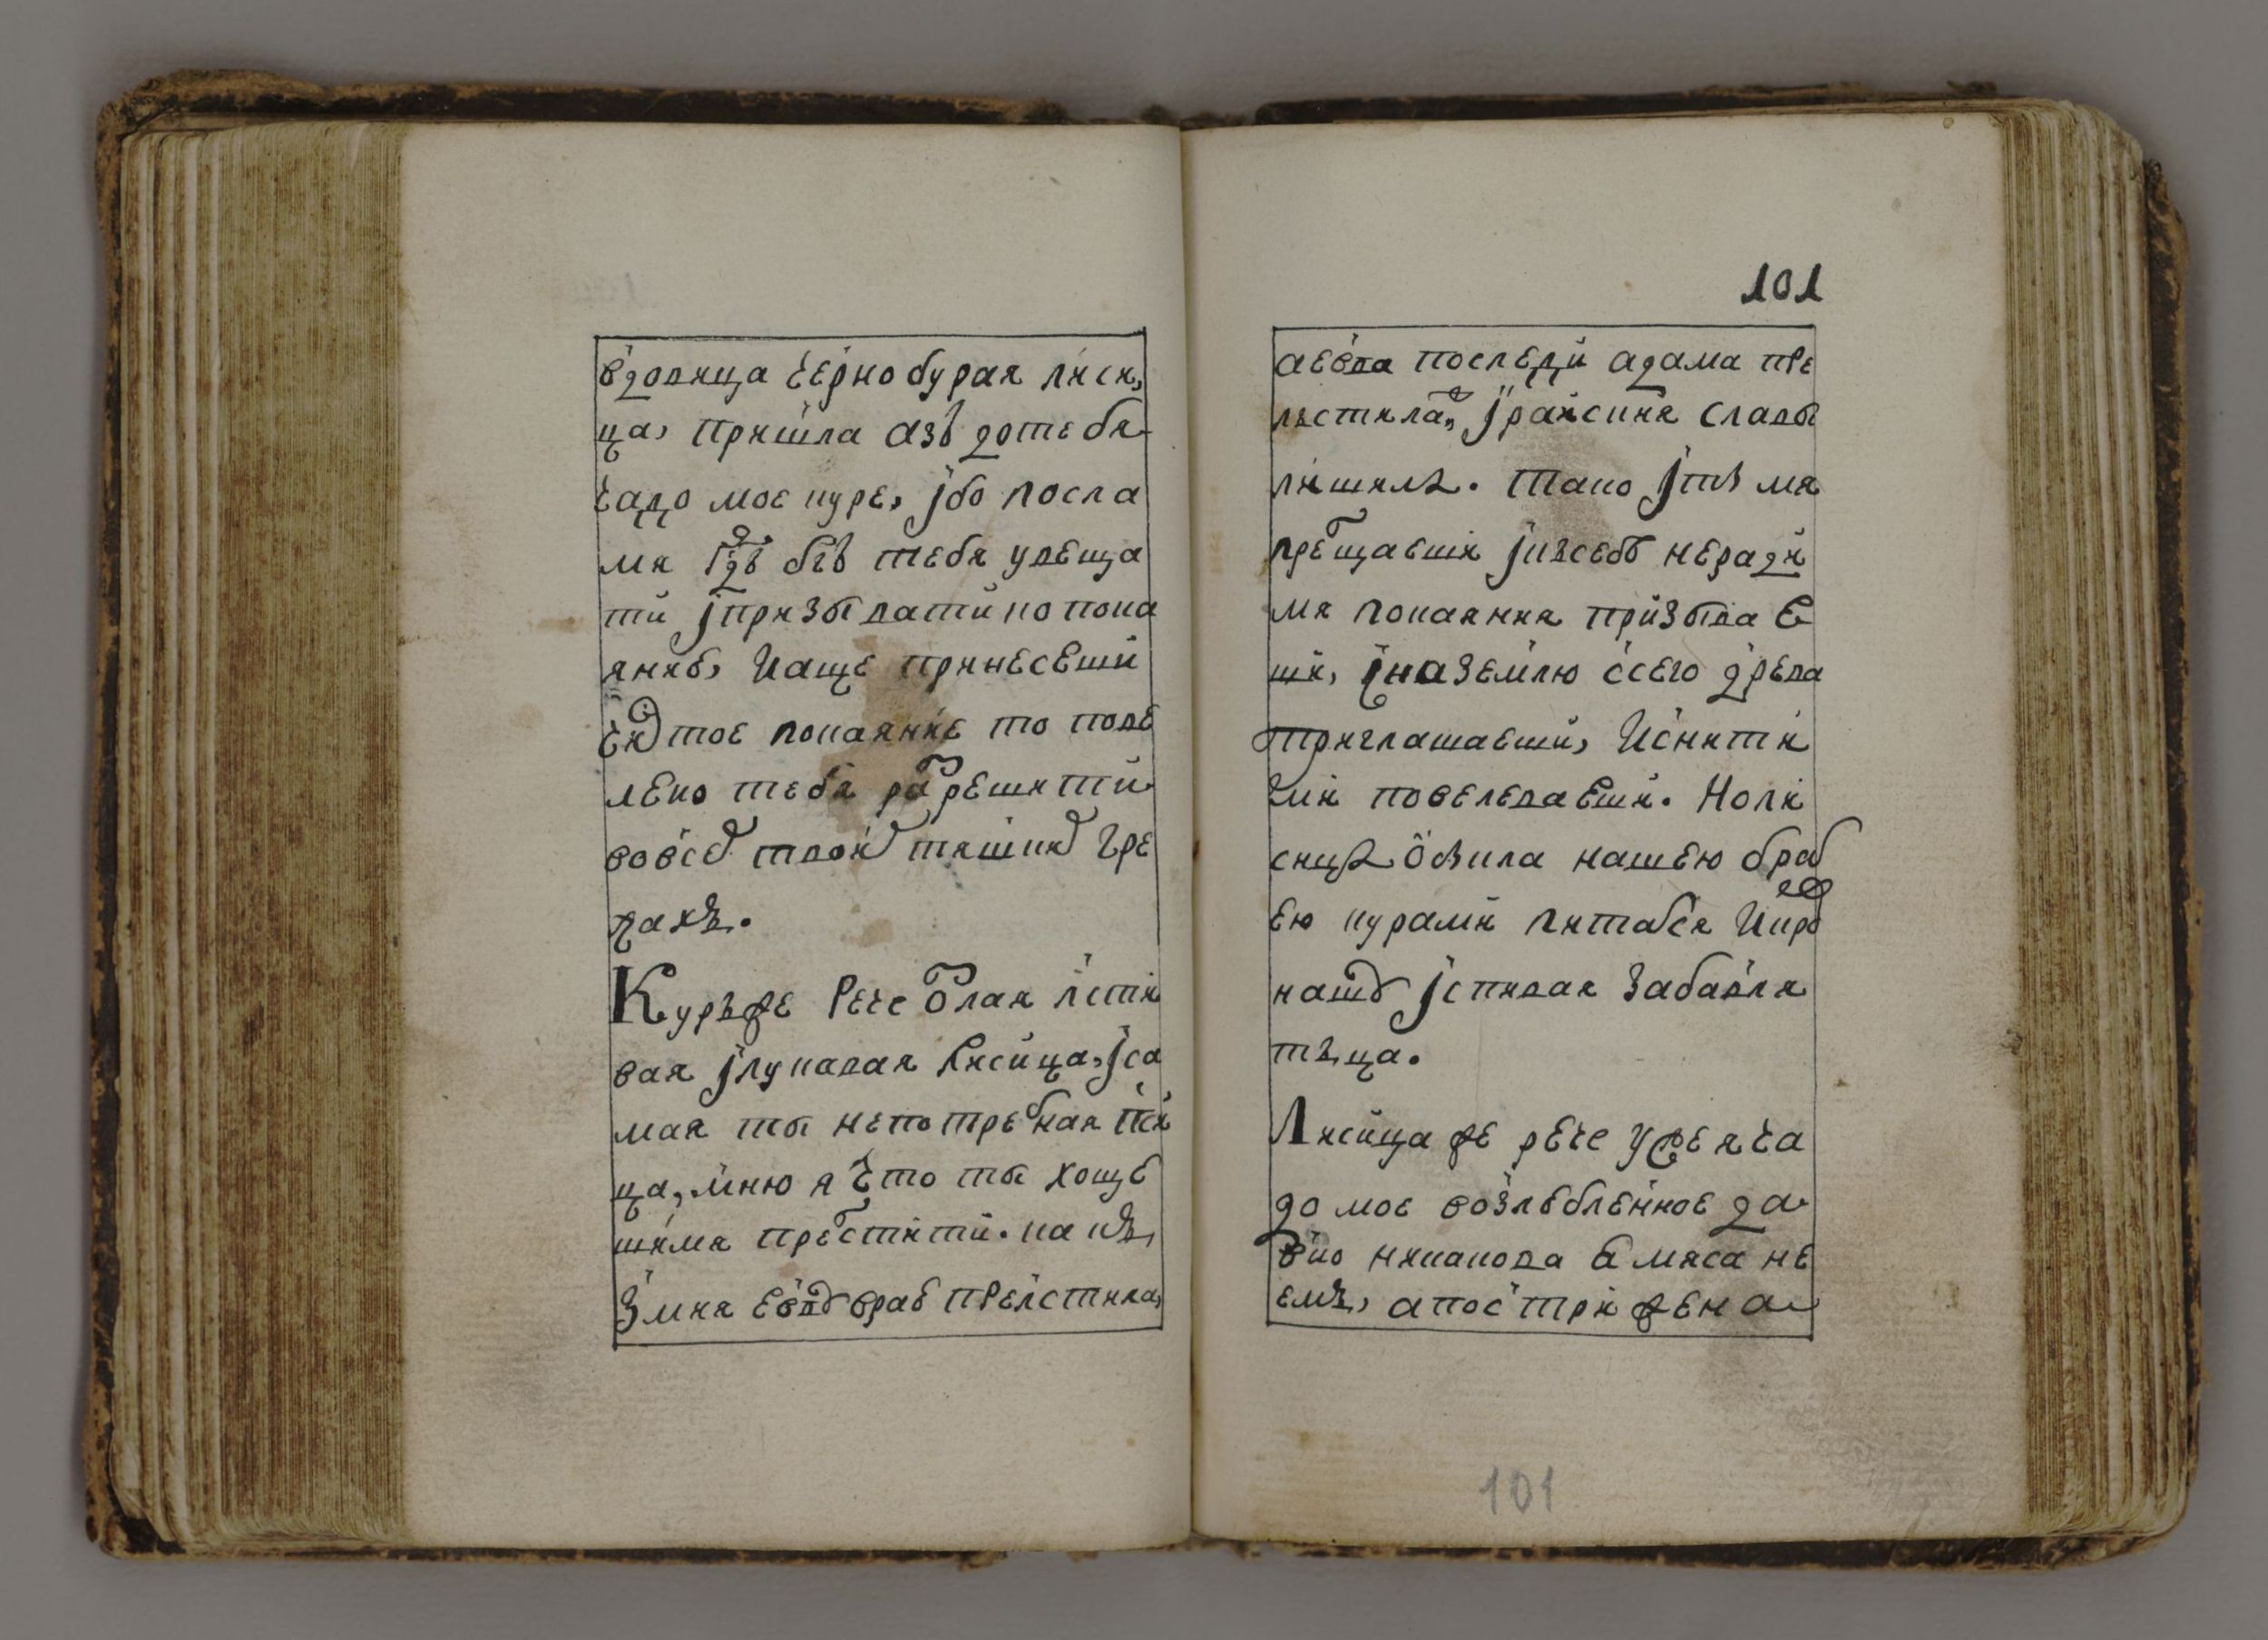 вдовица чернобурая лиси,
ца, пришла азъ дотебя
чадо мое куре, јбо посла
мя гдь бгъ тебя увеща
ти јпризывати но пока
янию, Иаще принесеши
ей тое покаяние то пове
лено тебя разрешити
вовсех твоих тяшких гре
хахъ.
Курьже Рече Злая лсти
вая јлукавая лисица, јса
мая ты непотребная пси
ца, мню я что ты хоще
шимя прелстити. какъ
Змия евву враб прелстила,
аевва последи адама пре
лстила, јрайсния славы
лишилъ. тако јты мя
прелщаеши јксебе неради
мя покаяния призывае
ши, јназемлю ссего древа
приглашаеши, Иснити
ми повелеваеши. Ноли
сицъ обыкла нашею бра
ею курами питатся Икро
нашу јспивая забавля
тьца.
Лисица же рече ужея ча
до мое возлюбленное да
вно никакова мяса не
емъ, апострижена
101
101